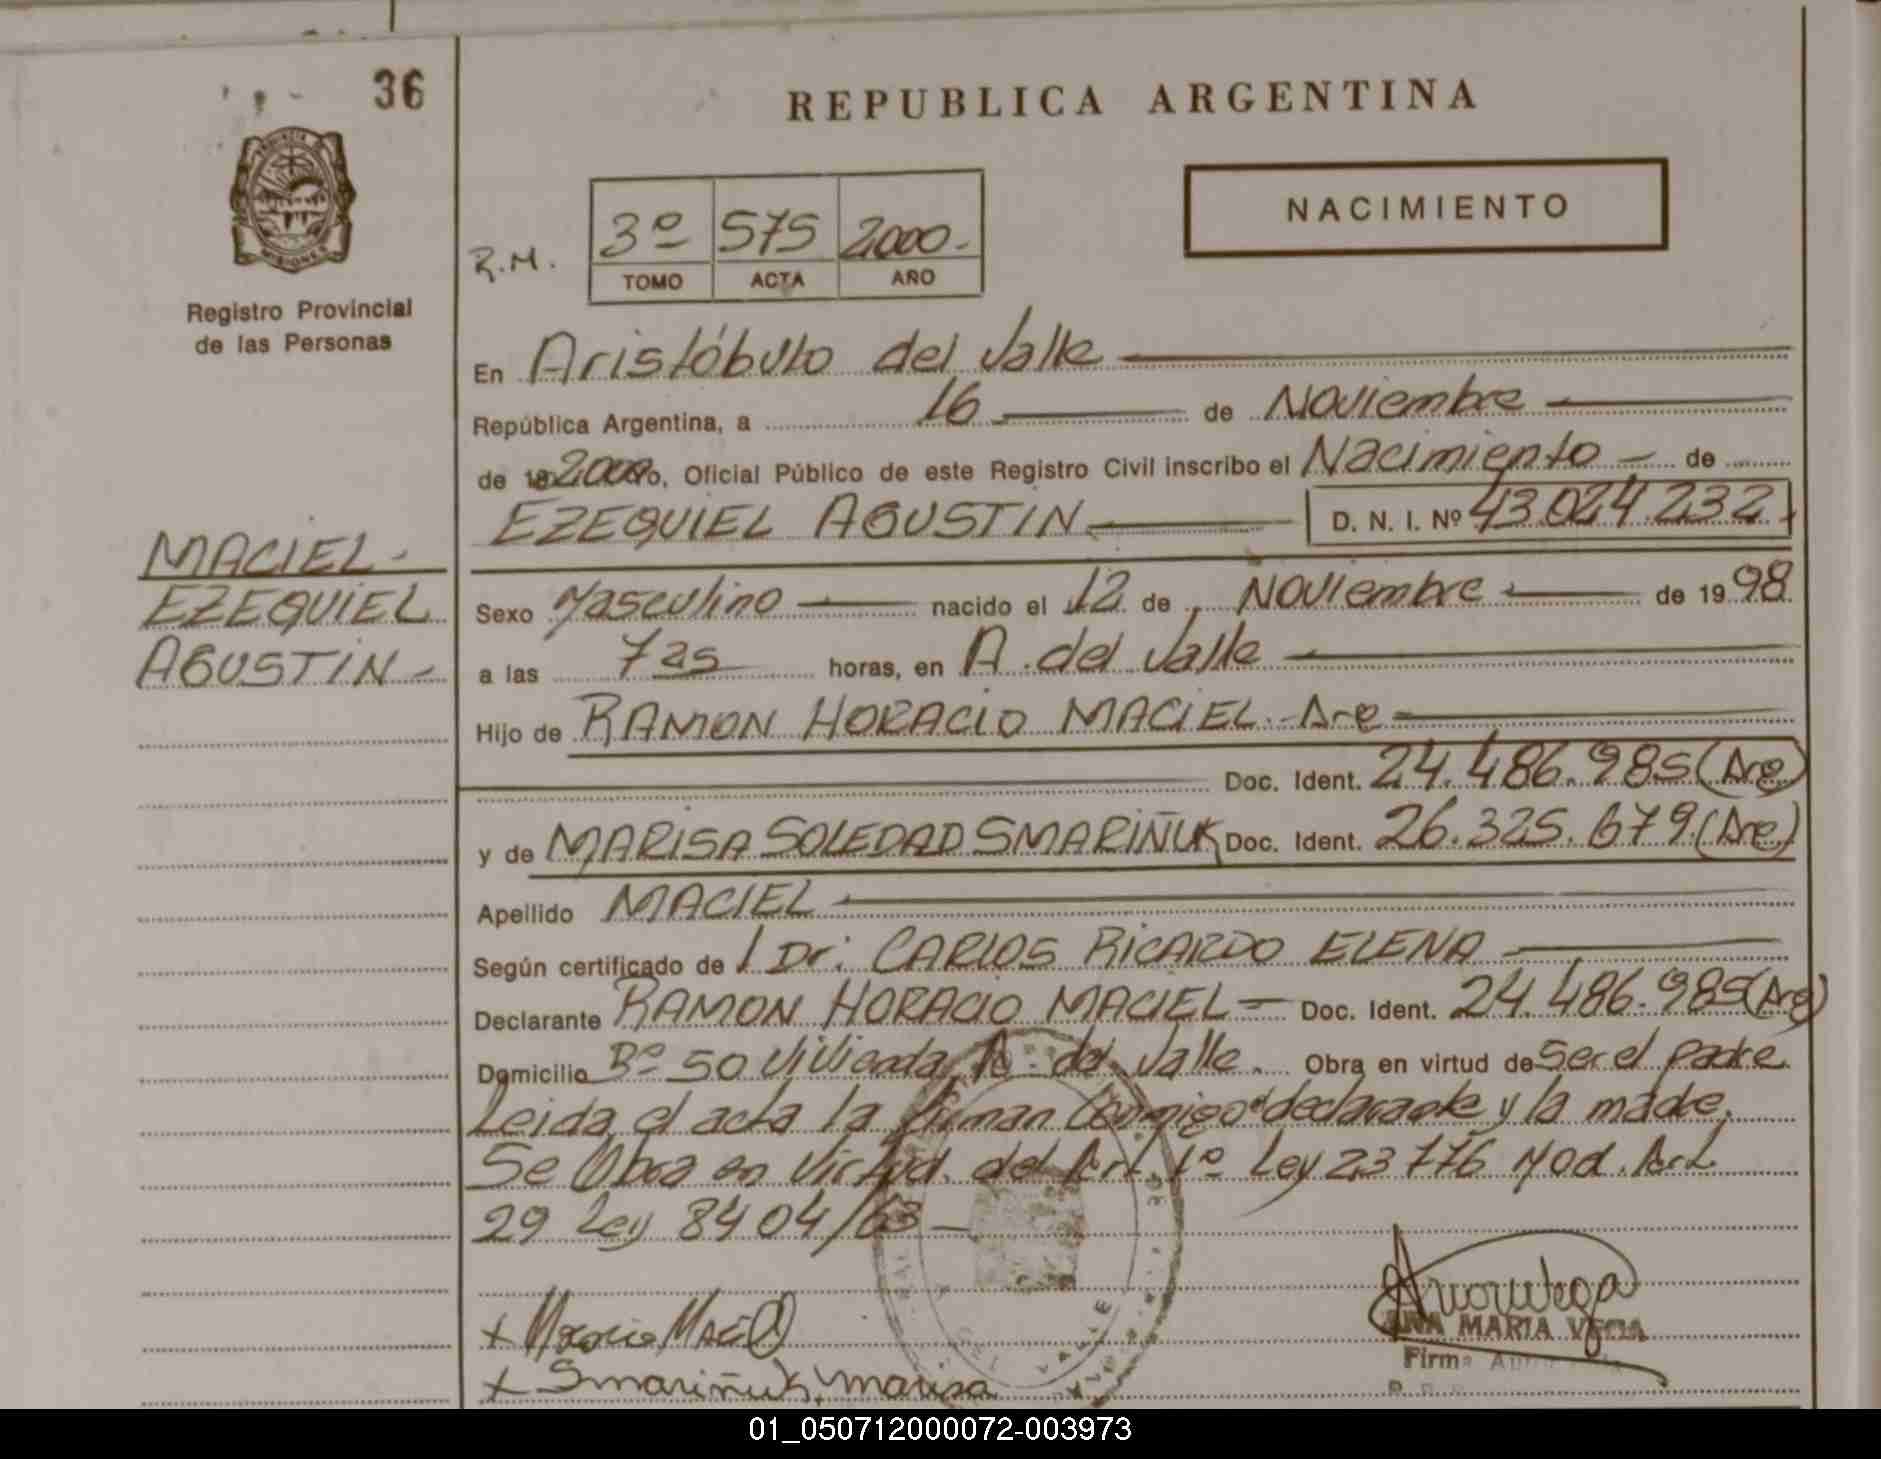 36
REPUBLICA ARGENTINA
NACIMIENTO
R.M.
3º 575 2000.-
TOMO ACTA AÑO
PROVINCIA
MISIONES
Registro Provincial
de las Personas
En Aristóbulo del Valle
República Argentina, a 16 de Noviembre
de 2000 Yo, Oficial Público de este Registro Civil inscribo el Nacimiento - de
EZEQUIEL AGUSTIN D. N. I. Nº 43.024.232.
MACIEL-
EZEQUIEL
AGUSTIN-
Sexo Masculino nacido el 12 de Noviembre de 1998
a las 7 as horas, en A. del Valle
Hijo de RAMON HORACIO MACIEL.- Arg
Doc. Ident. 24.486.985 (Arg)
y de MARISA SOLEDAD SMARIÑUK Doc. Ident. 26.325.679. (Arg)
Apellido MACIEL
Según certificado de / Dr: CARLOS RICARDO ELENA
Declarante RAMON HORACIO MACIEL - Doc. Ident. 24.486.985 (Arg)
Domicilio Bº 50 Vivienda A. del Valle. Obra en virtud de Ser el padre
Leida el acta la firman Conmigo el declarante y la madre.
Se Obra en Virtud del Art. 1º Ley 23776 Mod. Art
29 Ley 8404/63 -
x Horacio Maciel
x Smariñuk, marisa
ANA MARIA VEGA
Firma
01_050712000072-003973